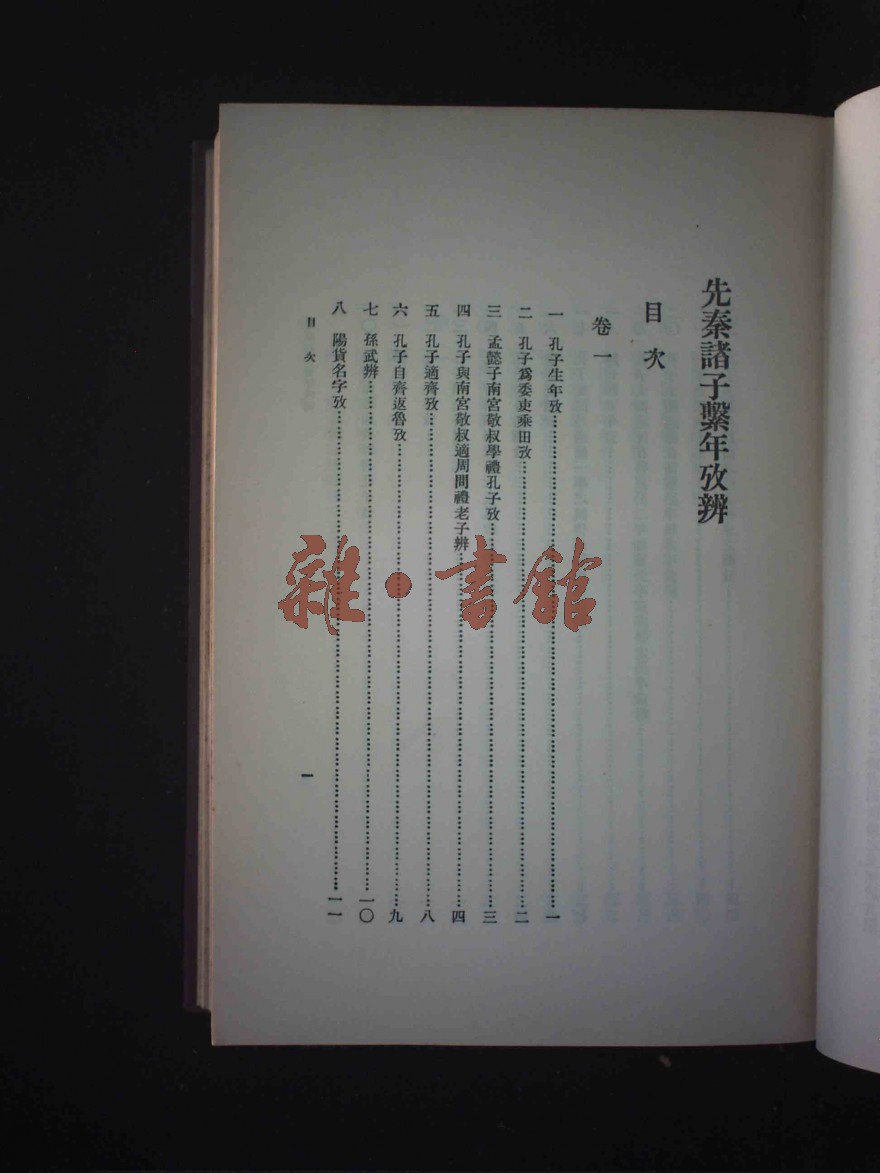 先秦諸子繫年攷辨
目次
卷一
一 孔子生年攷……一
二 孔子爲委吏乘田攷……二
三 孟懿子南宮敬叔學禮孔子攷……三
四 孔子與南宮敬叔適周問禮老子辨……四
五 孔子適齊攷……八
六 孔子自齊返魯攷……九
七 孫武辨……一〇
八 陽貨名字攷……一一
目次
一
雜·書館